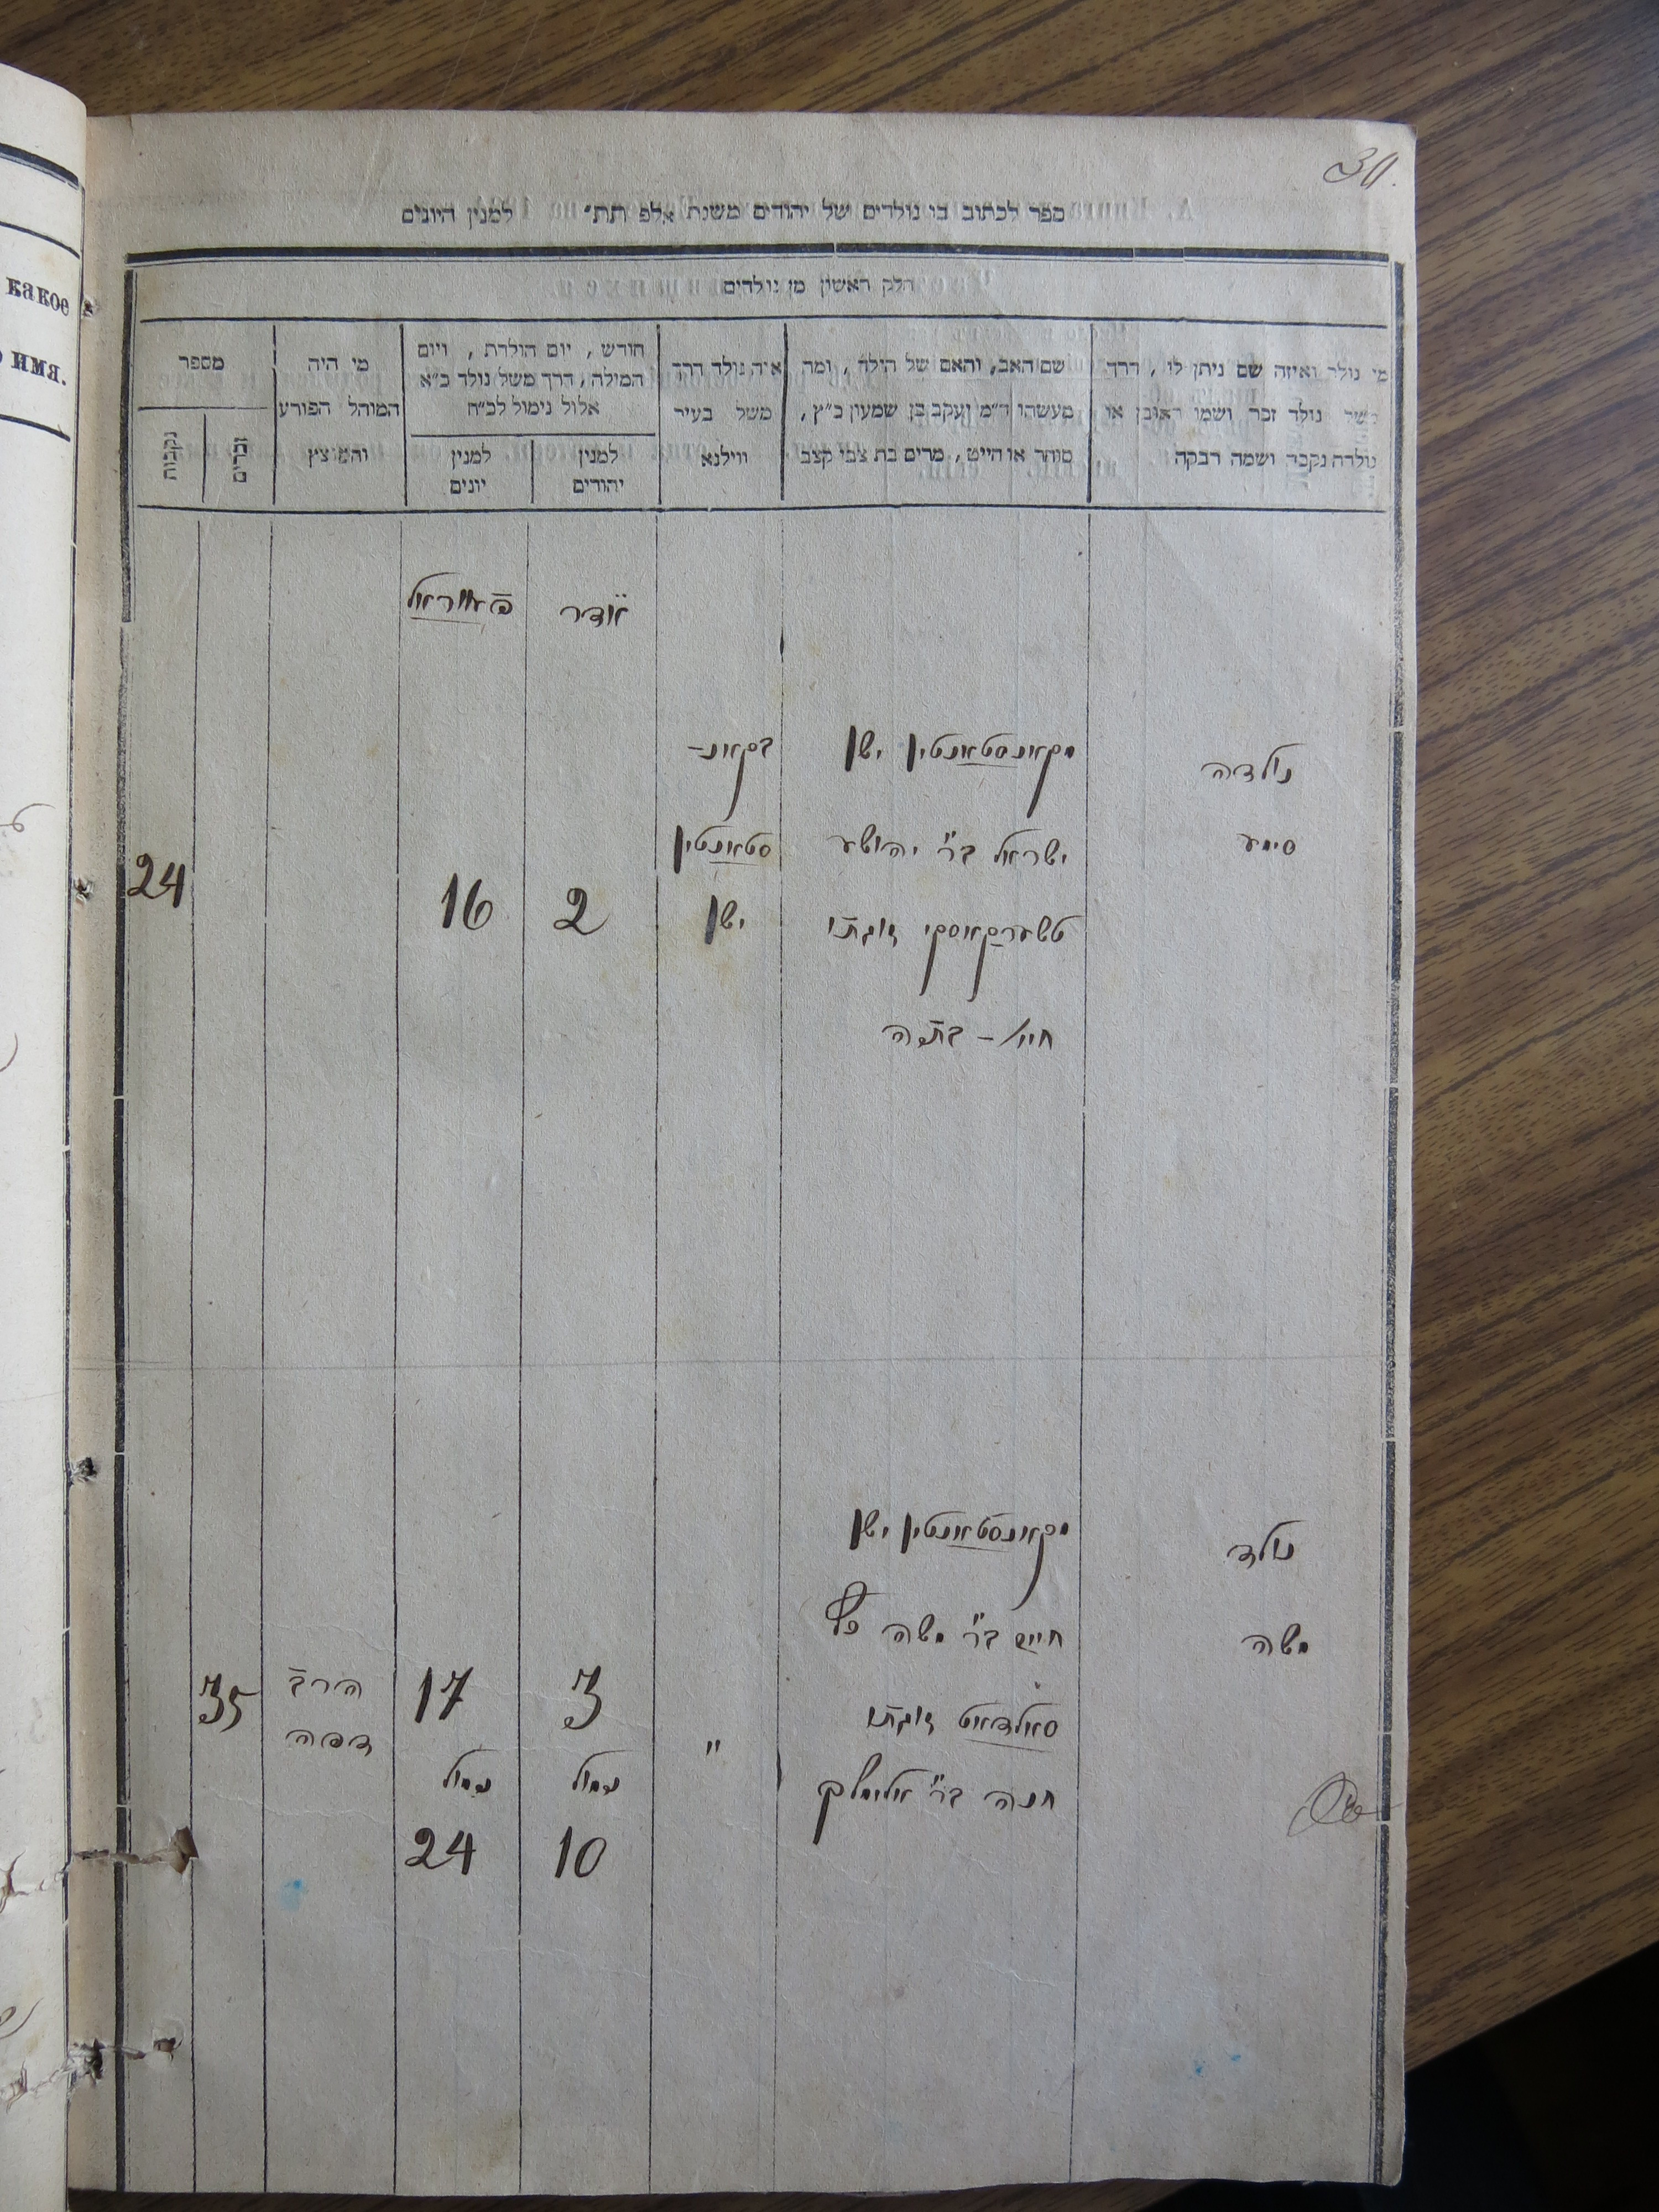 30.
ספר לכתוב בו נולדים של יהודים משנת אלפ תת״ למנין היונים
חלק ראשון מן נולדים
מי נולד ואיזה שם ניתן לו, דרך
משל נולד זכר ושמו ראובן או
נולדה נקבה ושמה רבקה
שם האב, והאם של הילד, ומה
מעשהו ה״מ יעקב בן שמעון כ״ץ,
סוחר או חייט, מרים בת צבי קצב
איה נולד דרך
משל בעיר
ווילנא
חודש, יום הולדת, ויום
המילה, דרך משל נולד כ״א
אלול נימול לכ״ח
למנין
יהודים
למנין
יונים
מי היה
המוהל הפורע
והמוצץ
מספר
זכרים
נקבות
אדר
פעווראל
נולדה
סימע
מקאנסטאנטין ישן
ישראל בר׳ יהושע
טשערקאסקי זוגתו
חי׳ - בתי׳ה
בקאנ-
סטאנטין
ישן
2
16
24
נולד
משה
מקאנסטאנטין ישן
חיים בר׳ משה
סאלדאט זוגתו
חנה בר׳ אלימלך
"
3
נמול
10
17
נמול
24
הרב
דפה
35
какое
имя.